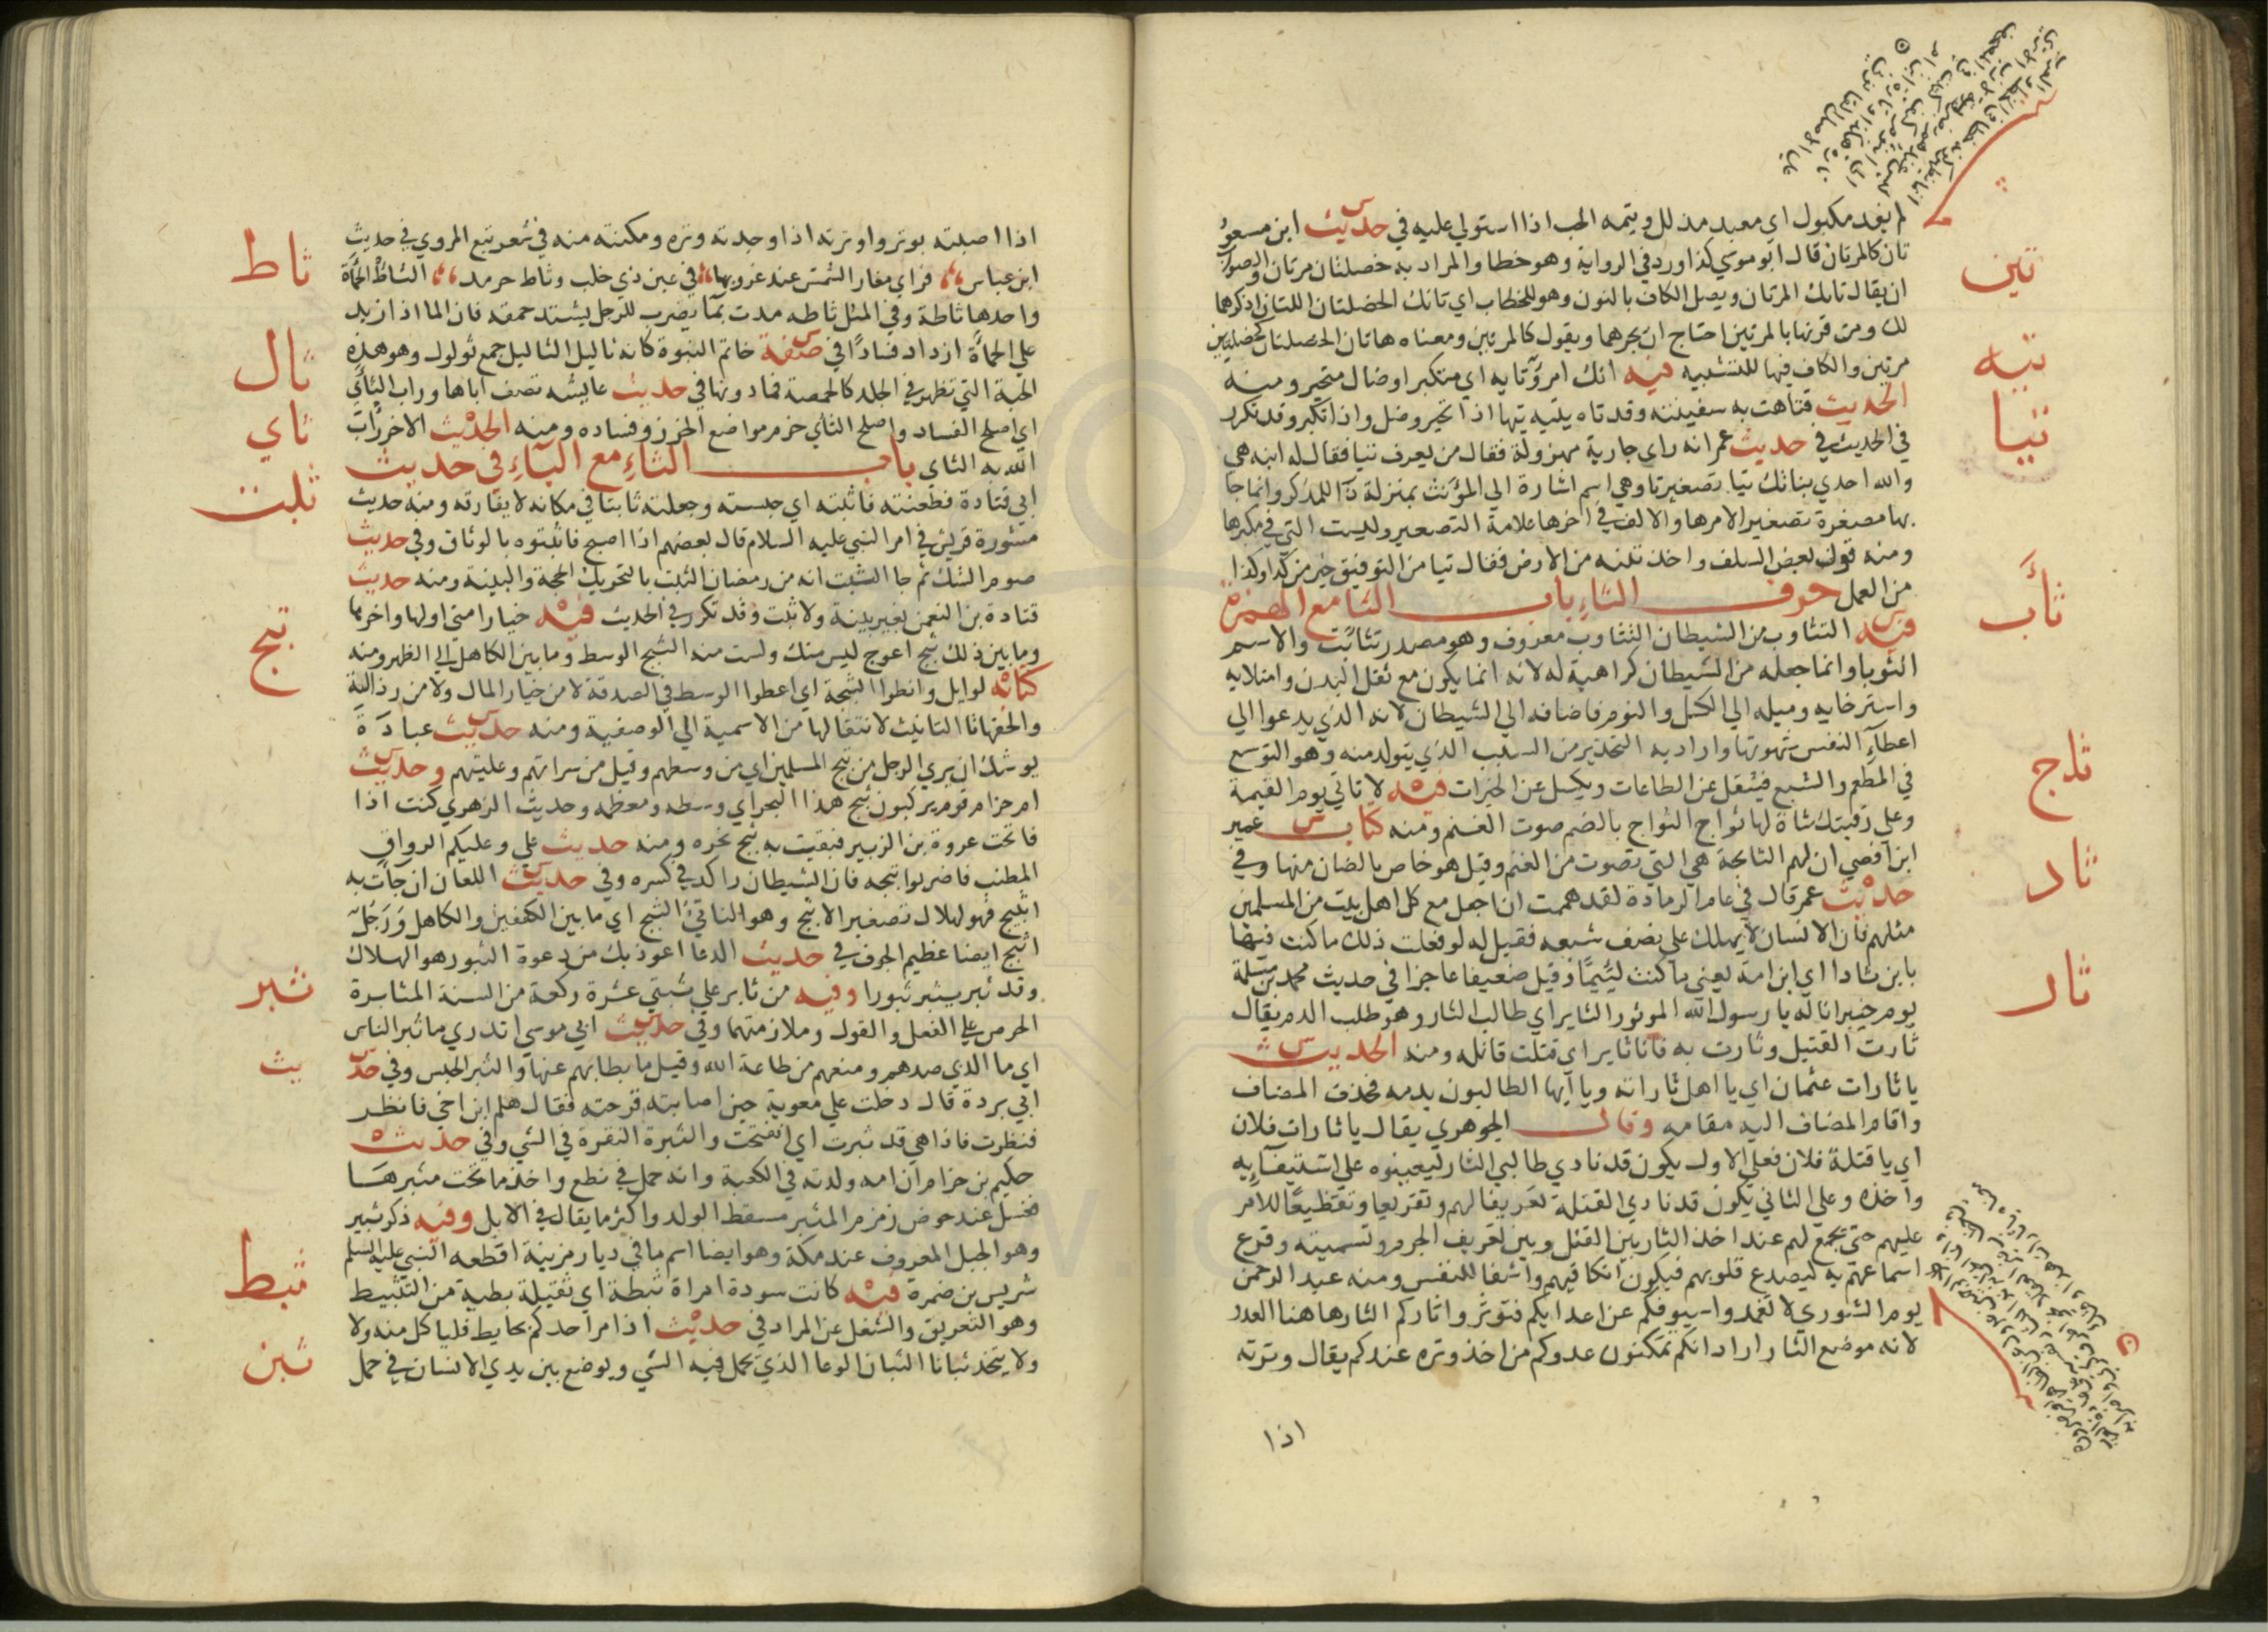 تين
تيه
تيا
ثأب
ثاج
ثاد
ثار
لم يفد مكبول اي معبد مذلل وتيمه الحب اذا استولي عليه في حديث ابن مسعود
تان كالمرتان قال ابو موسي كذا ورد في الرواية وهو خطا والمراد به خصلتان مرتان والصواب
ان يقال تانك المرتان ويصل الكاف بالنون وهو للخطاب اي تانك الخصلتان اللتان اذكرهما
لك ومن قرنها بالمرتين احتاج ان يجرهما ويقول كالمرتين ومعناه هاتان الخصلتان كخصلتين
مرتين والكاف فيها للتشبيه فيه انك امرؤ تايه اي متكبر اوضال متحير ومنه
الحديث فتاهت به سفينته وقد تاه يتيه تيها اذا تحير وضل واذا تكبر وقد تكرر
في الحديث في حديث عمر انه راي جارية مهزولة فقال من يعرف تيا فقال له ابنه هي
والله احدي بناتك تيا تصغير تا وهي اسم اشارة الي المؤنث بمنزلة ذا للمذكر وانما جا
بها مصغرة تصغير الامرها والالف في اخرها علامة التصغير وليست التي في مكبرها
ومنه قول بعض السلف واخذ تبنه من الارض فقال تيا من التوفيق خير من كذا وكذا
من العمل حرف الثاء باب الثا مع الهمزة
فيه التثاوب من الشيطان التثاوب معروف وهو مصدر تثائبت والاسم
الثوبا وانما جعله من الشيطان كراهية له لانه انما يكون مع ثقل البدن وامتلايه
واسترخايه وميله الي الكسل والنوم فاضافه الي الشيطان لانه الذي يدعوا الي
اعطاء النفس شهوتها واراد به التحذير من السبب الذي يتولد منه وهو التوسع
في المطعم والشبع فيثقل عن الطاعات ويكسل عن الخيرات فيه لا تاتي يوم القيمة
وعلي رقبتك شاة لها ثواج الثواج بالضم صوت الغنم ومنه كتاب عمير
ابن افصي ان لهم الثايجة هي التي تصوت من الغنم وقيل هو خاص بالضان منها وفي
حديث عمر قال في عام الرمادة لقد هممت ان اجعل مع كل اهل بيت من المسلمين
مثلهم فان الانسان لا يهلك علي نصف شبعه فقيل له لو فعلت ذلك ما كنت فيها
بابن ثادا اي ابن امة يعني ما كنت لئيما وقيل ضعيفا عاجزا في حديث محمد بن مسلمة
يوم خيبر انا له يا رسول الله الموثور الثاير اي طالب الثار وهو طلب الدم يقال
ثارت القتيل وثارت به فانا ثاير اي قتلت قاتله ومنه الحديث
يا ثارات عثمان اي يا اهل ثاراته ويا ايها الطالبون بدمه فحذف المضاف
واقام المضاف اليه مقامه وقال الجوهري يقال يا ثارات فلان
اي يا قتلة فلان فعلي الاول يكون قد نادي طالبي الثار ليعينوه علي استيفآيه
واخذه وعلي الثاني يكون قد نادي القتلة تعريفا لهم وتقريعا وتفظيعا للامر
عليهم حتي يجمع لهم عند اخذ الثار بين القتل وبين تعريف الجرم وتسميته وقرع
اسماعهم به ليصدع قلوبهم فيكون انكا فيهم واشفا للنفس ومنه عبد الرحمن
يوم الشوري لا تغمدوا سيوفكم عن اعدايكم فتوثر واثاركم الثار هاهنا العدو
لانه موضع الثار اراد انكم تمكنون عدوكم من اخذ وتره عندكم يقال وترته
اذا
ثاط
ثال
ثاي
ثبت
ثبج
ثبر
بث
ثبط
ثبن
اذا اصبته بوتر واوترته اذا وجدته وتره ومكنته منه في شعر تبع المروي في حديث
ابن عباس فراي مغار الشمس عند غروبها في عين ذي خلب وثاط حرمد الثاط الحمأة
واحدها ثاطة وفي المثل ثاطه مدت بما يضرب للرجل يشتد حمقه فان الما اذا زيد
علي الحمأة ازداد فسادا في صفة خاتم النبوة كانه ثاليل الثاليل جمع ثولول وهو هذه
الحبة التي تظهر في الجلد كالحمصة فما دونها في حديث عايشه تصف اباها وراب الثأي
اي اصلح الفساد واصلح الثأي خرم مواضع الخرز وفساده ومنه الحديث الاخر رأب
الله به الثاي باب الثاء مع الباء في حديث
ابي قتادة فطعنته فاثبته اي حبسته وجعلته ثابتا في مكانه لا يفارقه ومنه حديث
مشورة قريش في امر النبي عليه السلام قال بعضهم اذا اصبح فاثبتوه بالوثاق وفي حديث
صوم الشك ثم جا الثبت انه من رمضان الثبت بالتحريك الحجة والبينة ومنه حديث
قتادة بن النعمن بغير بينة ولا ثبت وقد تكرر في الحديث فيه خيار امتي اولها واخرها
وما بين ذلك ثبج اعوج ليس منك ولست منه الثبج الوسط وما بين الكاهل الي الظهر ومنه
كتابه لوايل وانطوا الثبجة اي اعطوا الوسط في الصدقة لا من خيار المال ولا من رذالته
والحقها تا التانيث لانتقالها من الاسمية الي الوصفية ومنه حديث عبادة
يوشك ان يري الرجل من ثبج المسلمين اي من وسطهم وقيل من سراتهم وعليتهم وحديث
ام حزام قوم يركبون ثبج هذا البحر اي وسطه ومعظمه وحديث الزهري كنت اذا
فاتحت عروة بن الزبير فتقت به ثبج بحره ومنه حديث علي وعليكم الرواق
المطنب فاضربوا ثبجه فان الشيطان راكد في كسره وفي حديث اللعان ان جآت به
اثيبج فهو لهلال تصغير الاثبج وهو الناتئ الثبج اي ما بين الكتفين والكاهل ورجل
اثبج ايضا عظيم الجوف في حديث الدعا اعوذ بك من دعوة الثبور هو الهلاك
وقد ثبر يثبر ثبورا وفيه من ثابر علي ثنتي عشرة ركعة من السنة المثابرة
الحرص علي الفعل والقول وملازمتهما وفي حديث ابي موسي اتدري ما ثبر الناس
اي ما الذي صدهم ومنعهم من طاعة الله وقيل ما بطا بهم عنها والثبر الحبس وفي حديث
ابي بردة قال دخلت علي معوية حين اصابته قرحته فقال هلم ابن اخي فانظر
فنظرت فاذا هي قد ثبرت اي انفتحت والثبرة النقرة في الشي وفي حديث
حكيم بن حزام ان امه ولدته في الكعبة وانه حمل في نطع واخذ ما تحت مثبرها
فغسل عند حوض زمزم المثبر مسقط الولد واكثر ما يقال في الابل وفيه ذكر ثبير
وهو الجبل المعروف عند مكة وهو ايضا اسم ما في ديار مزينة اقطعه النبي عليه السلم
شريس بن ضمرة فيه كانت سودة امراة ثبطة اي ثقيلة بطية من التثبيط
وهو التعويق والشغل عن المراد في حديث اذا مر احدكم بحايط فلياكل منه ولا
ولا يتخذ ثبانا الثبان الوعا الذي يحمل فيه الشي ويوضع بين يدي الانسان في حمل